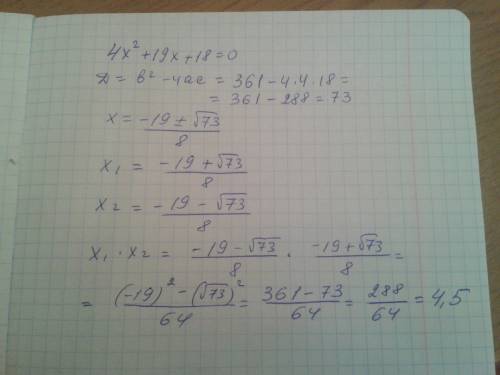 4x² + 19x + 18 = 0
D = b² - 4ac = 361 - 4·4·18 =
= 361 - 288 = 73
x = (-19 ± √73)/8
x₁ = (-19 + √73)/8
x₂ = (-19 - √73)/8
x₁ · x₂ = (-19 - √73)/8 · (-19 + √73)/8 =
= ((-19)² - (√73)²)/64 = (361 - 73)/64 = 288/64 = 4,5